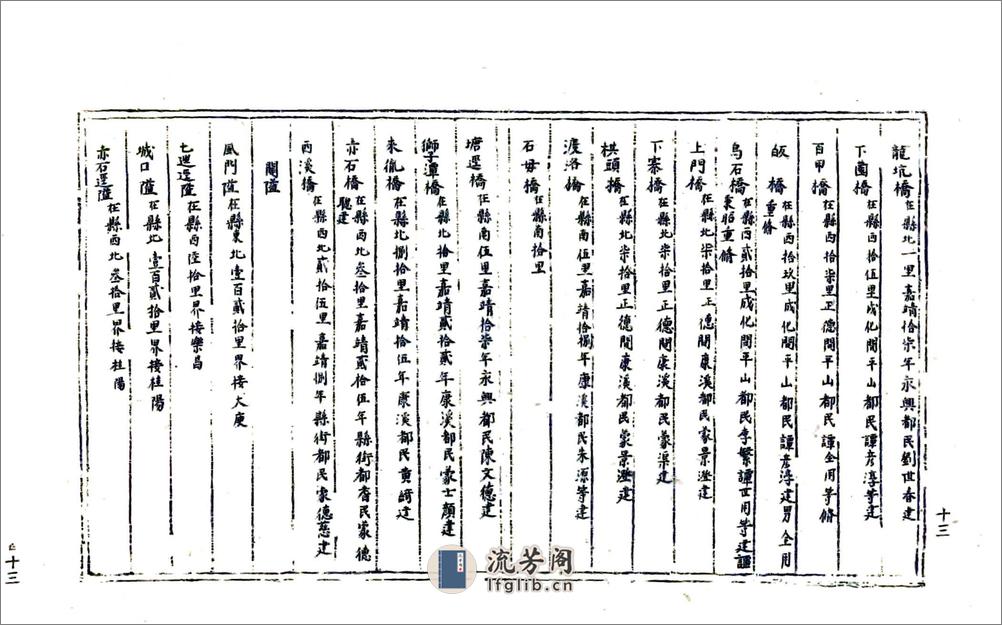 龍坑橋在縣北一里嘉靖拾柒年永興都民劉世春建
下園橋在縣西拾伍里成化間平山都民譚彥淳等建
百甲橋在縣西拾柒里正德間平山都民譚全用等修
坂橋在縣西拾玖里成化間平山都民譚彥淳建男全用
重修
烏石橋在縣西貳拾里成化間平山都民李繁譚世用等建譚
秉昭重修
上門橋在縣北柒拾里正德間康溪都民蒙景澄建
下寨橋在縣北柒拾里正德間康溪都民蒙渠建
栱頭橋在縣北柒拾里正德間康溪都民蒙景澄建
渡洛橋在縣南伍里嘉靖拾捌年康溪都民朱源等建
石毋橋在縣南拾里
塘邊橋在縣南伍里嘉靖拾柒年永興都民陳文德建
獅子潭橋在縣北拾里嘉靖貳拾貳年康溪都民蒙士顏建
朱侃橋在縣北捌拾里嘉靖拾伍年康溪都民黄綺建
赤石橋在縣西北叁拾里嘉靖貳拾伍年縣街都耆民蒙德
聰建
西溪橋在縣西北貳拾伍里嘉靖捌年縣街都民蒙德慈建
關隘
風門隘在縣東北壹百貳拾里界接大庾
七里逕隘在縣西陸拾里界接樂昌
城口隘在縣北壹百貳拾里界接桂陽
赤石逕隘在縣西北叁拾里界接桂陽
十三
十三
流芳阁
lfglib.cn